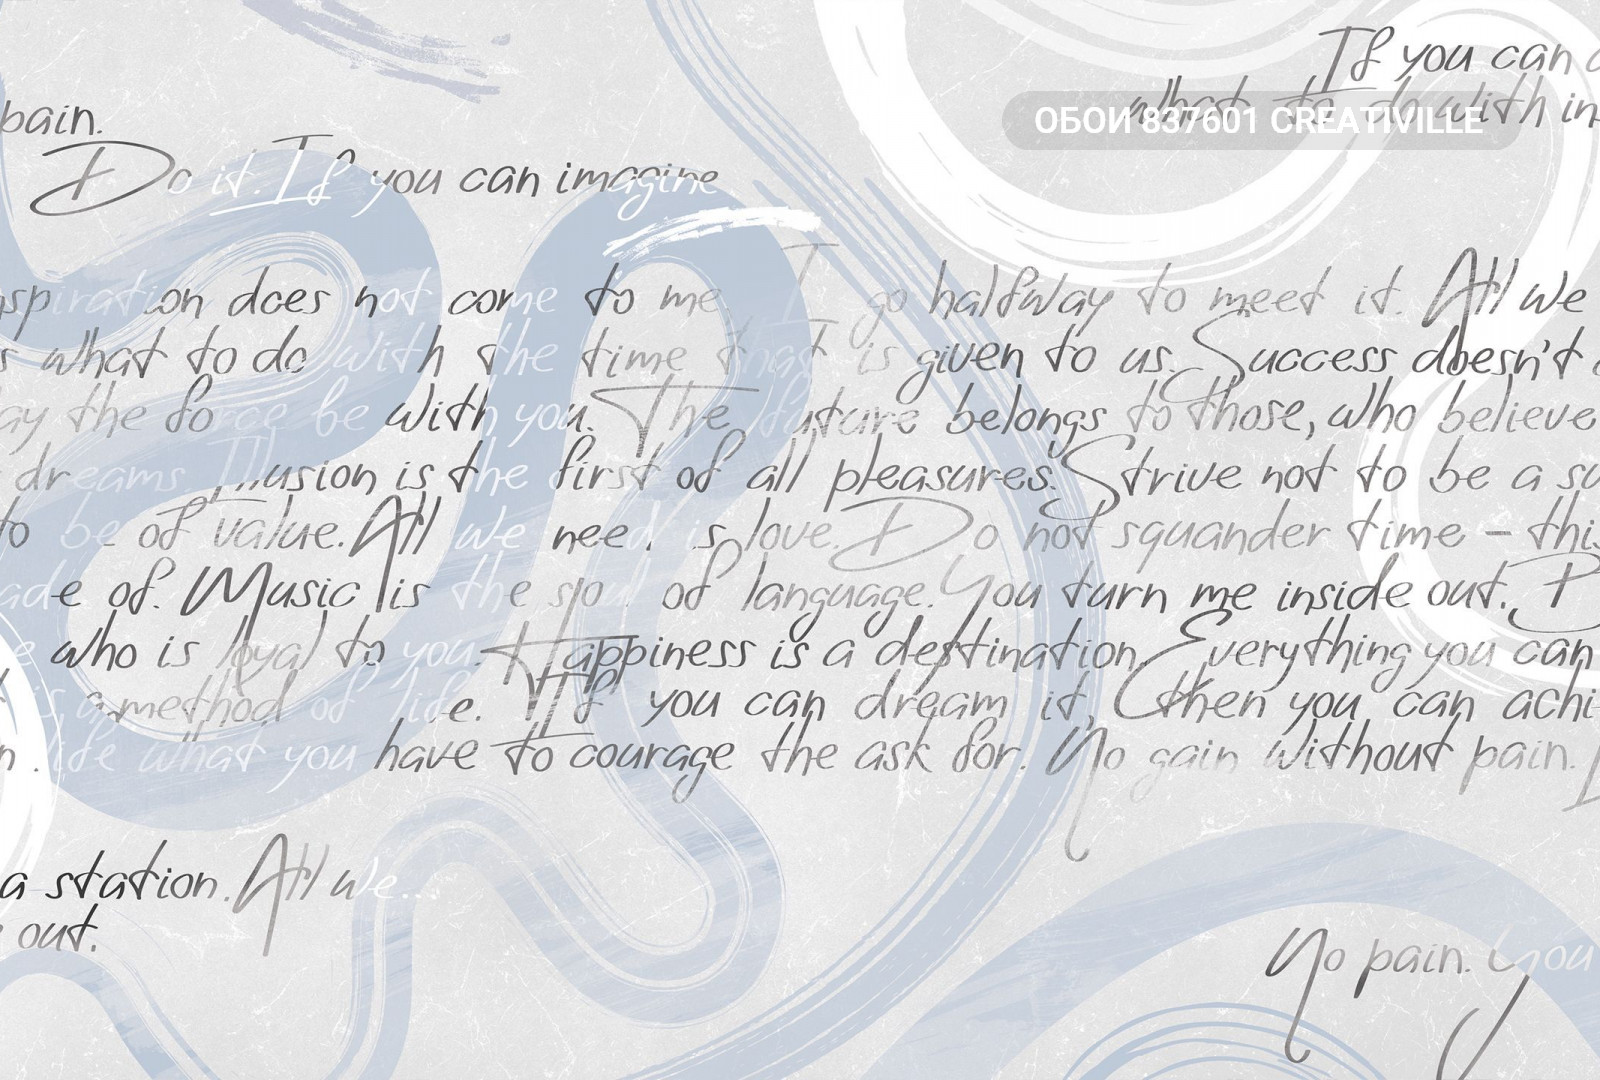 If you can
what to do with
ОБОИ 837601 CREATIVILLE
pain.
Do it. If you can imagine
nspiration does not come to me I go halfway to meet it. All we
s what to do with the time that is given to us. Success doesn't
ay the force be with you. The future belongs to those, who believe
dreams. Illusion is the first of all pleasures. Strive not to be a su
to be of value. All we need is love. Do not squander time – this
ade of. Music is the spo of language. You turn me inside out.
e who is loyal to you. Happiness is a destination. Everything you can
is a method of life. If you can dream it, then you can achi
n. life what you have to courage the ask for. No gain without pain.
a station. All we...
out.
No pain. You